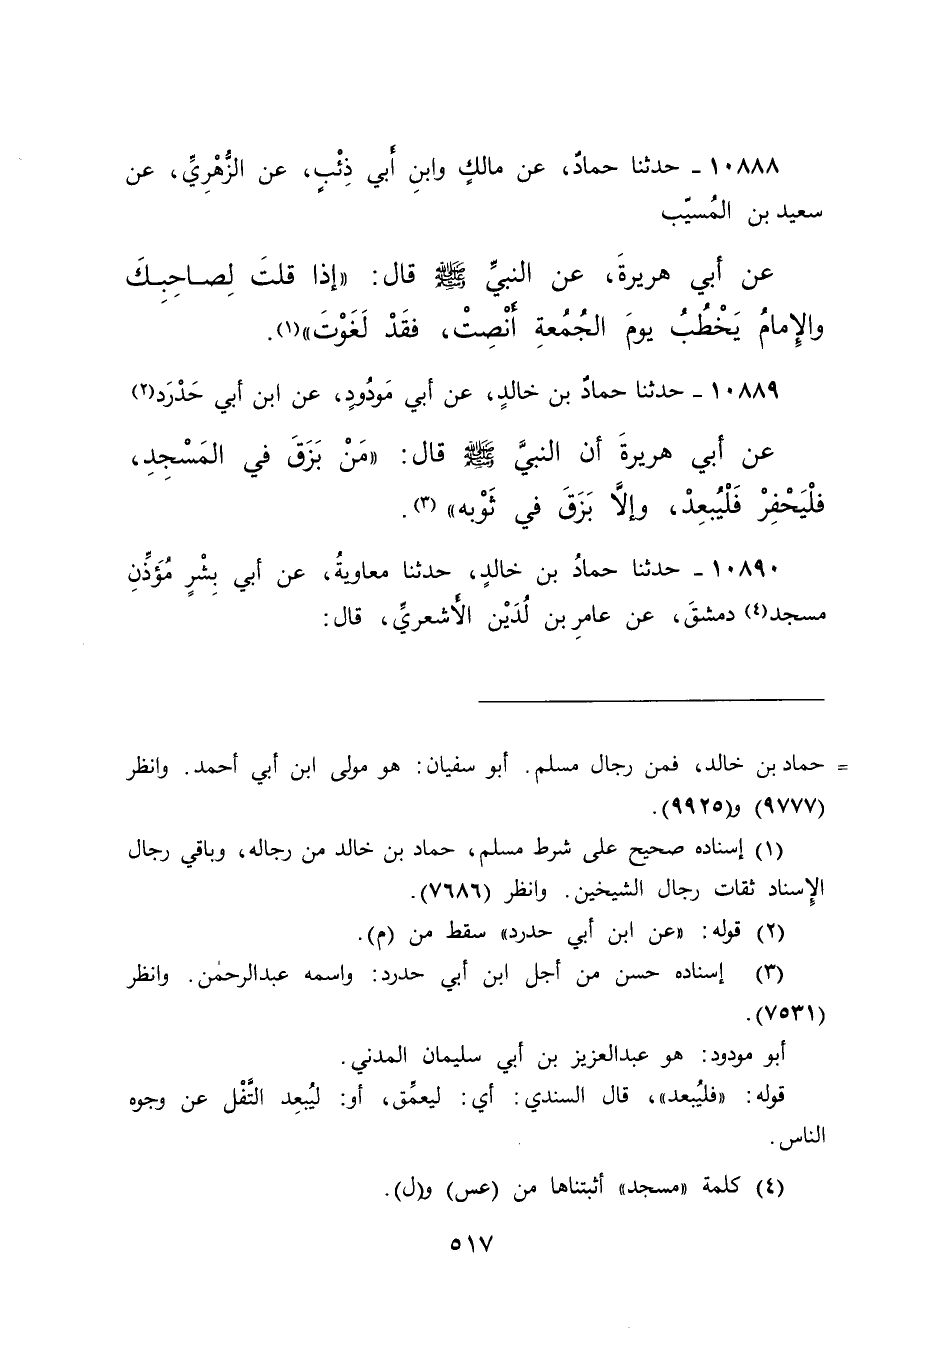 ١٠٨٨٨ ـ حدثنا حمادٌ، عن مالكٍ وابنِ أَبي ذِئْبٍ، عن الزُّهْرِيِّ، عن
سعيد بن المُسيّب
عن أبي هريرةَ، عن النبيِّ ﷺ قال: «إذا قلتَ لِصاحِبِكَ
والإِمامُ يَخْطُبُ يومَ الجُمُعةِ أَنْصِتْ، فقَدْ لَغَوْتَ»(١).
١٠٨٨٩ ـ حدثنا حمادُ بن خالدٍ، عن أبي مَودُودٍ، عن ابن أبي حَدْرَد(٢)
عن أبي هريرةَ أن النبيَّ ﷺ قال: «مَنْ بَزَقَ في المَسْجِدِ،
فلْيَحْفِرْ فَلْيُبعِدْ، وإلَّا بَزَقَ في ثَوْبه» (٣).
١٠٨٩٠ ـ حدثنا حمادُ بن خالدٍ، حدثنا معاويةُ، عن أبي بِشْرٍ مُؤَذِّنِ
مسجد(٤) دمشقَ، عن عامرِ بن لُدَيْن الأَشعريِّ، قال:
= حماد بن خالد، فمن رجال مسلم. أبو سفيان: هو مولى ابن أبي أحمد. وانظر
(٩٧٧٧) و(٩٩٢٥).
(١) إسناده صحيح على شرط مسلم، حماد بن خالد من رجاله، وباقي رجال
الإِسناد ثقات رجال الشيخين. وانظر (٧٦٨٦).
(٢) قوله: «عن ابن أبي حدرد» سقط من (م).
(٣) إسناده حسن من أجل ابن أبي حدرد: واسمه عبدالرحمٰن. وانظر
(٧٥٣١).
أبو مودود: هو عبدالعزيز بن أبي سليمان المدني.
قوله: «فليُبعد»، قال السندي: أي: ليعمِّق، أو: ليُبعِد التَّفْل عن وجوه
الناس.
(٤) كلمة «مسجد» أثبتناها من (عس) و(ل).
٥١٧